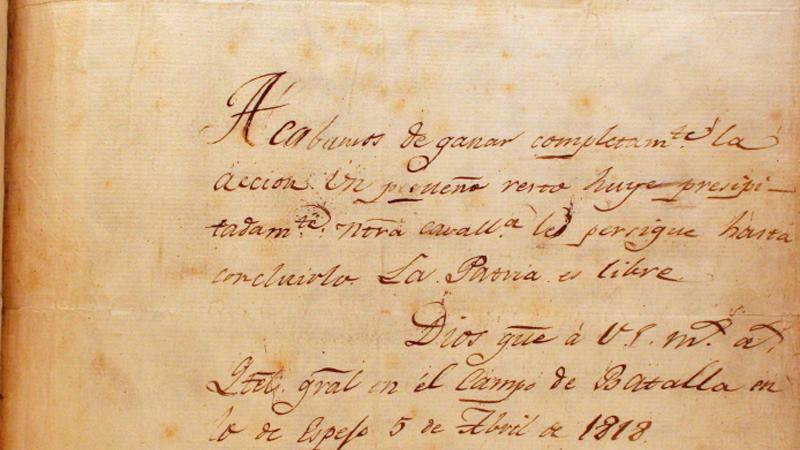 Acabamos de ganar completamte. la
accion. Un pequeño resto huye presipi-
tadamte. Ntra cavalla. lo persigue hasta
concluirlo. La Patria es libre
Dios gue à V.E. ms. as.
Qtel. gral en el Campo de Batalla en
lo de Espejo 5 de Abril de 1818.